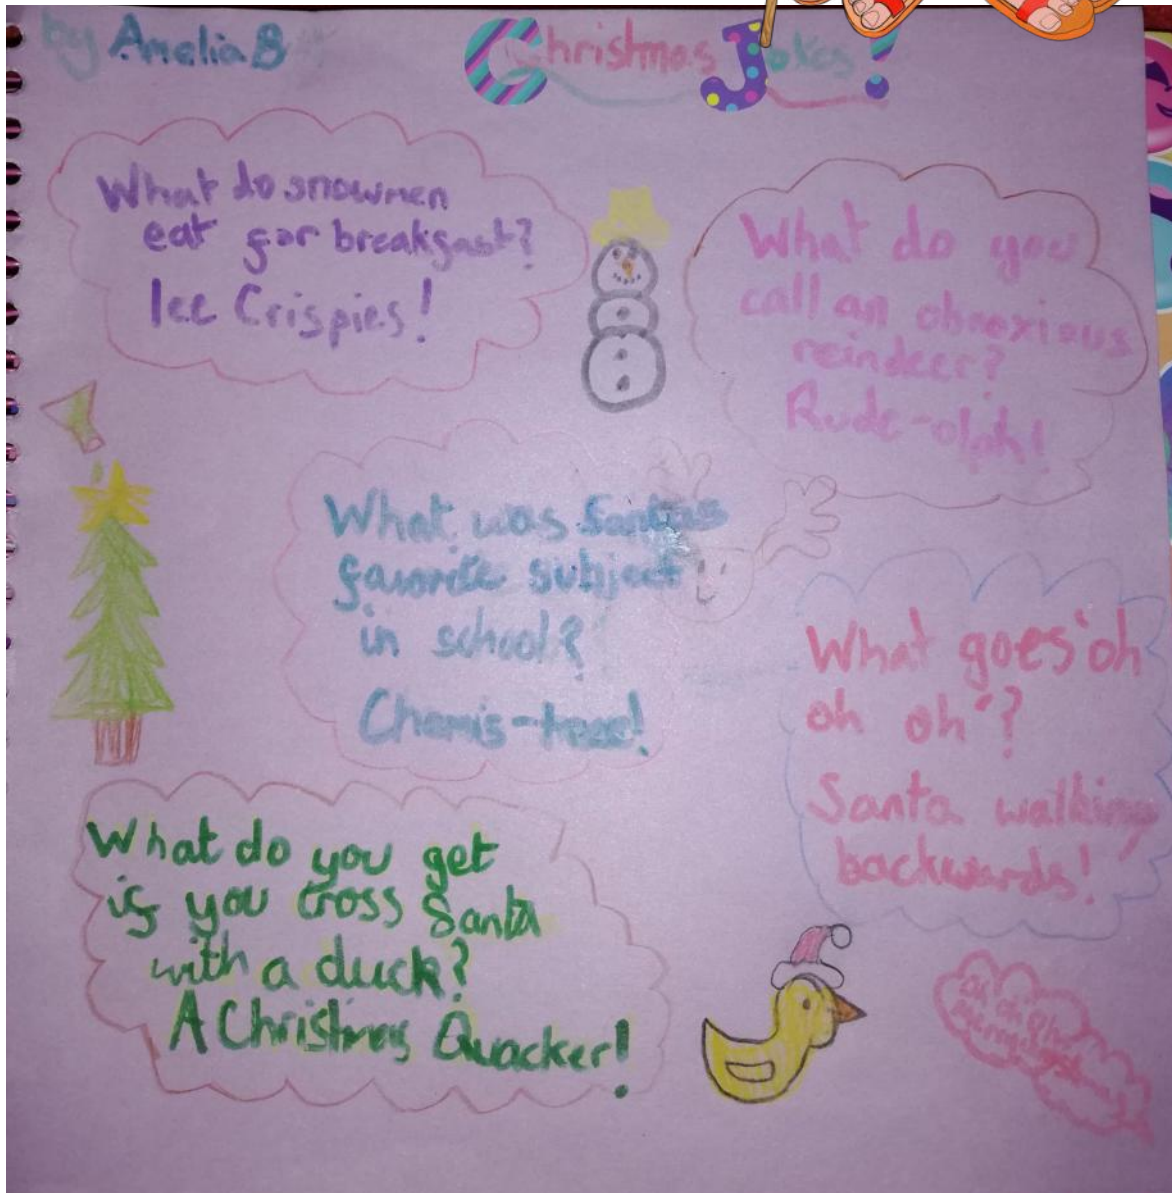 by Amelia B
Christmas Jokes!
What do snowmen
eat for breakfast?
Ice Crispies!
What do you
call an obnoxious
reindeer?
Rude-olph!
What was Santas
favorite subject
in school?
Chemis-tree!
What goes 'oh
oh oh'?
Santa walking
backwards!
What do you get
if you cross Santa
with a duck?
A Christmas Quacker!
oh oh oh